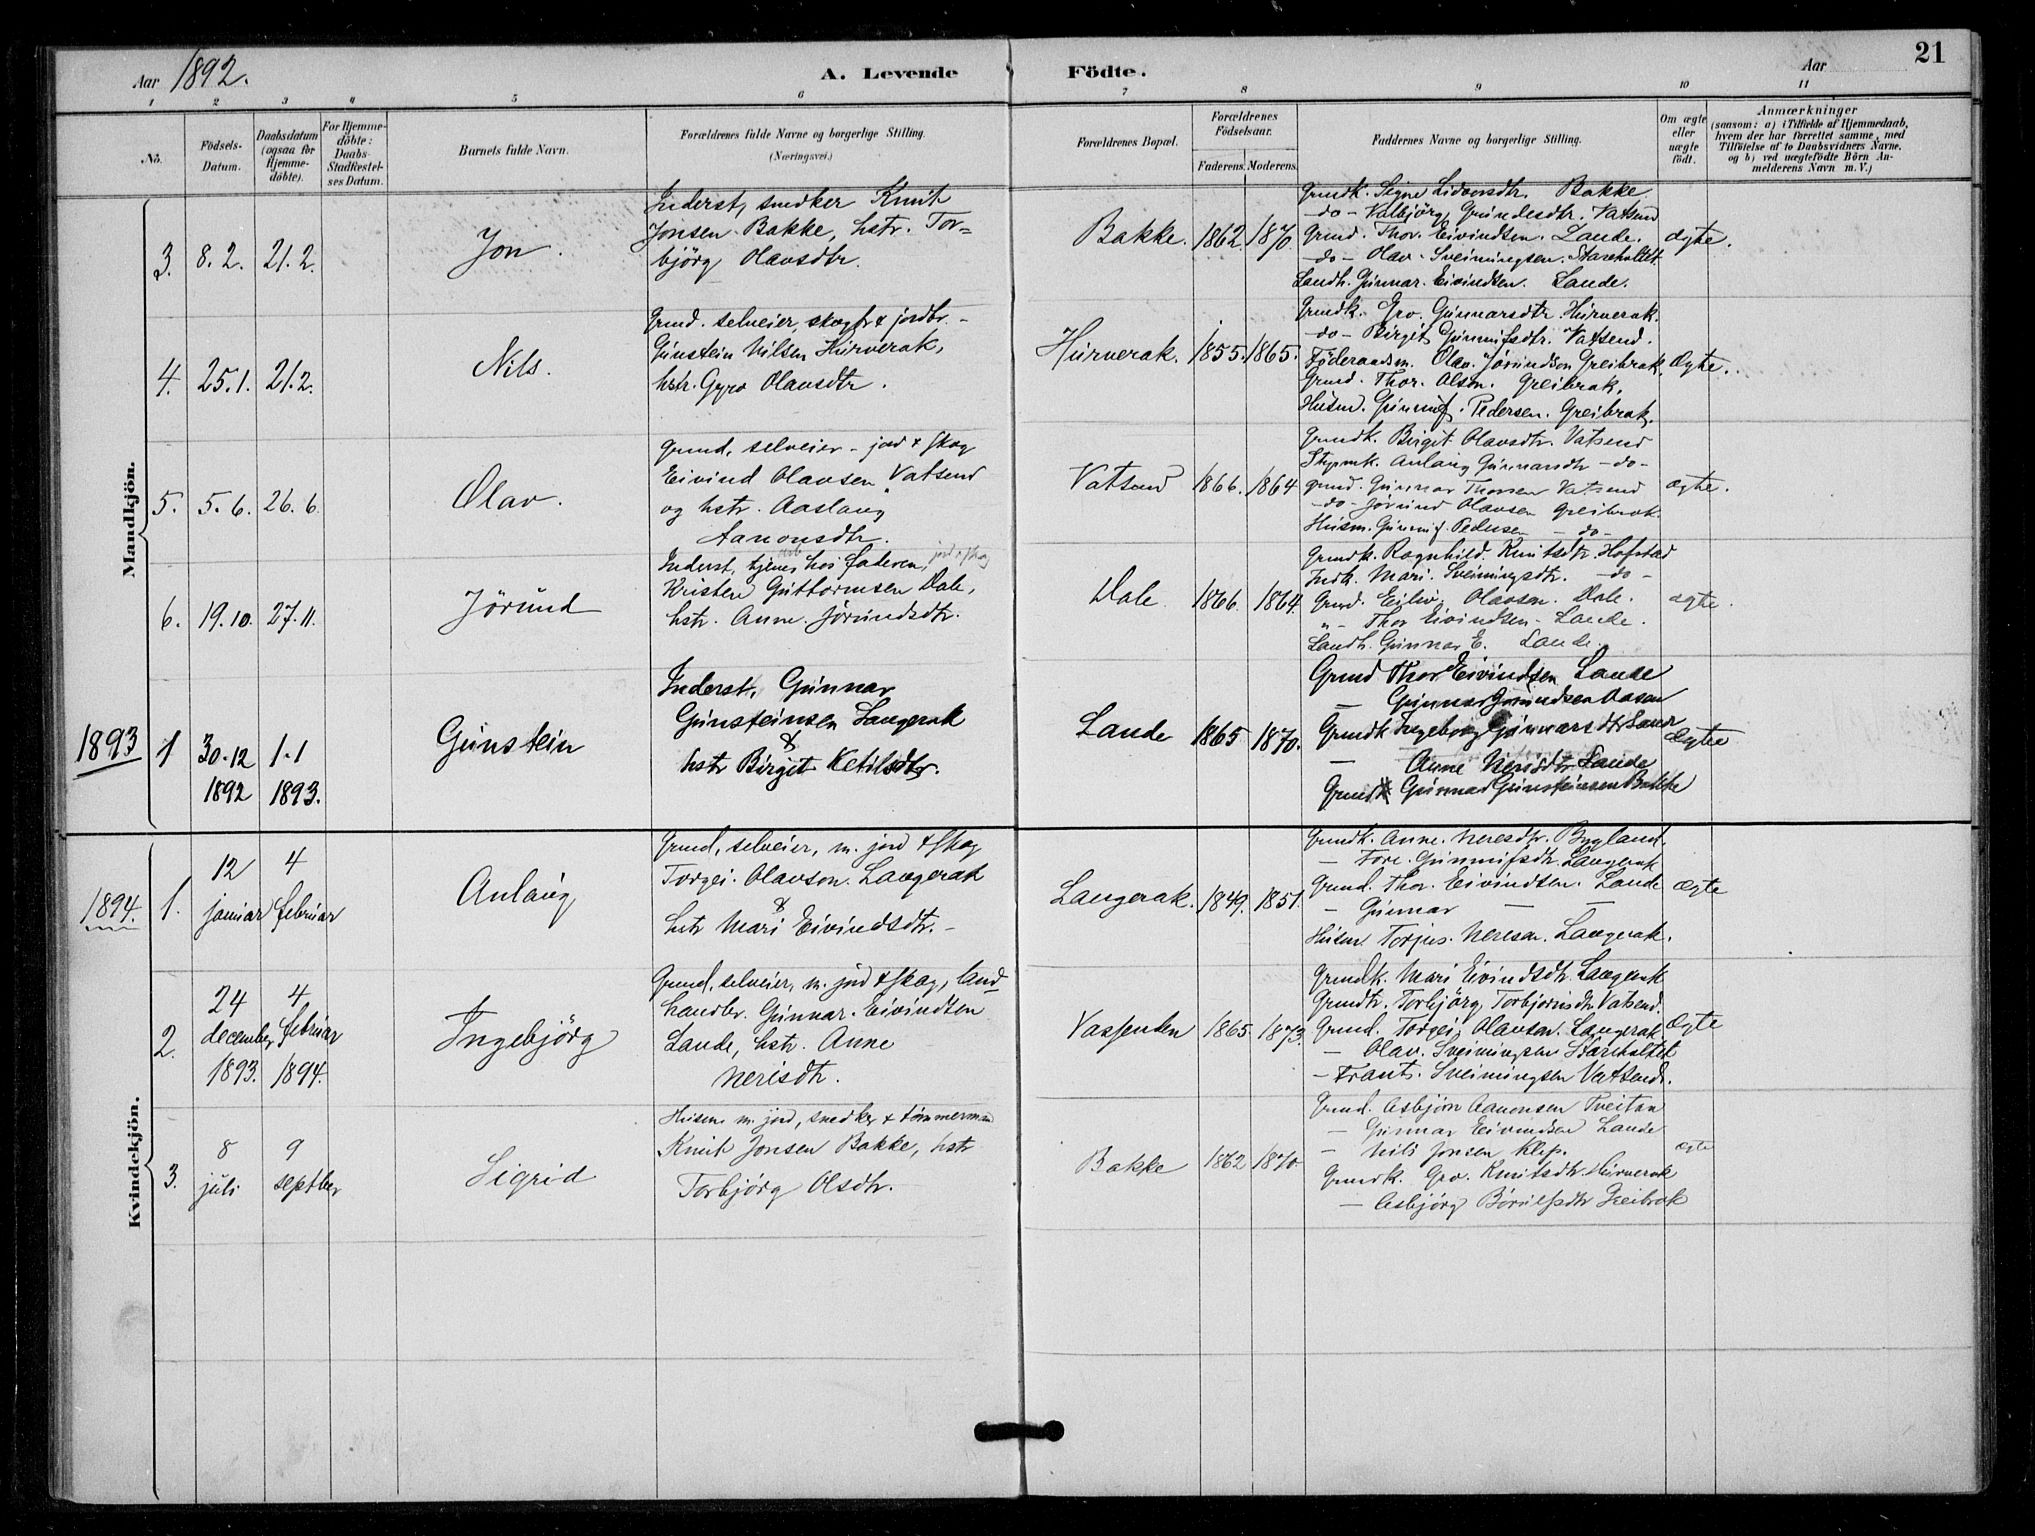 Aar 1892.
A. Levende Födte.
Aar
21
1 2 3 4 5 6 7 8 9 10 11
No.
Födsels-Datum.
Daabsdatum (ogsaa for Hjemme-döbte).
For Hjemme-döbte: Daabs-Stadfæstel-ses Datum.
Barnets fulde Navn.
Forældrenes fulde Navne og borgerlige Stilling.
(Næringsvei.)
Forældrenes Bopæl.
Forældrenes Födselsaar.
Faderens. Moderens.
Faddernes Navne og borgerlige Stilling.
Om ægte eller uægte födt.
Anmærkninger
(saasom: a) i Tilfælde af Hjemmedaab, hvem der har forrettet samme, med Tilföielse af to Daabsvidners Navne, og b) ved uægtefödte Börn An-melderens Navn m. V.)
Mandkjön.
3. 8.2. 21.2. Jon.
Inderst, snedker Knut
Jonsen Bakke, hstr. Tor-
björg Olavsdtr.
Bakke. 1862. 1870
Grundk. Signe Lidvorsdtr. Bakke
-do- Valbjörg Grundesdtr. Vatsend
Grund. Thor. Eivindsen. Lande.
-do- Olav. Sveinungsen. Stareholtet.
Landh. Gunnar. Eivindsen. Lande.
ægte.
4. 25.1. 21.2. Nils.
Grund. selveier, skogbr & jordbr.-
Gunstein Nilsen Hurverak,
hstr. Gyro Olavsdtr.
Hurverak. 1855. 1865.
Grundk. Gro. Gunnarsdtr Hurverak.
-do- Birgit Gunnufsdtr. Vatsend.
Föderaadsm. Olav. Jörundson Greibrak.
Grund. Thor. Olson. Greibrak,
Husm. Gunnuf. Pedersen. Greibrak.
Ægte.
5. 5.6. 26.6. Olav.
Grund, selveier - jord & skog
Eivind Olavsen Vatsend
og hstr. Aaslaug
Aanonsdtr.
Vatsend 1866. 1864
Grundk. Birgit Olavsdtr. Vatsend
Anlaug Gunnarsdtr -do-
grund. Gunnar Thorsen Vatsend
-do- Jörund Olavsen Greibrok.
Husm. Gunnuf. Pedersen -do-
ægte.
6. 19.10. 27.11. Jörund
Inderst, tjener hos faderen, jord & skog
Kristen Guttormsen Dale,
hstr. Anne. Jörundsdtr.
Dale 1866. 1864.
Grundk. Ragnhild. Knutsdtr. Hofstad
Indk. Mari. Sveinungsdtr. -do-
Grund. Eiliv. Olavsen. Dale.
"- Thor Eivindsen - Lande.
Landh. Gunnar E. Lande.
ægte.
1893 1 30.12 1892 1.1 1893. Gunstein
Inderst, Gunnar
Gunsteinsen Langerak
&
hstr Birgit Ketilsdtr.
Lande 1865 1870.
Grund Thor Eivindsen Lande
— Gunnar Jörundsen Aasen
Grundk Ingeborg Gunnarsdtr Lande
— Anne Nerisdtr Lande
Grund Gunnar Gunsteinsen Bakke
Ægte
Kvindekjön.
1894. 1. 12 januar 4 februar Anlaug
Grund, selveier, m. jord & skog
Torgei. Olavson. Langerak
&
hstr Mari Eivindsdtr.-
Langerak. 1849. 1851.
Grundk. Anne. Neresdtr. Bygland.
— Tore. Gunnufsdtr. Langerak
Grund. Thor. Eivindsen. Lande
— Gunnar — —
Husm. Torjus. Neresen. Langerak.
Ægte
2. 24 december 1893. 4 februar 1894. Ingebjörg
Grund, selveier, m. jord & skog, land-
handler. Gunnar. Eivindsen
Lande, hstr. Anne
Nerisdtr.
Vassenden 1865. 1873.
Grundk. Mari Eivindsdtr. Langerak
Grundtr. Torbjörg Torbjornsdtr. Vatsend.
Grund. Torgei, Olavson. Langerak
— Olav. Sveinungsen Stareholtet
— Frants. Sveinungsen Vatsend.
Ægte
3. 8 juli 9 septber Sigrid
Husm m. jord, snedker & tömmermand
Knut Jonsen Bakke, hstr
Torbjörg Olsdtr.
Bakke 1862 1870
Grund. Asbjörn Aanonsen Tveitan
— Gunnar Eivindsen Lande
— Nils Jonsen Klep.
Grundk. Gro. Knutsdtr. Hurverak
— Asbjörg Börulfsdtr Greibrok
ægte